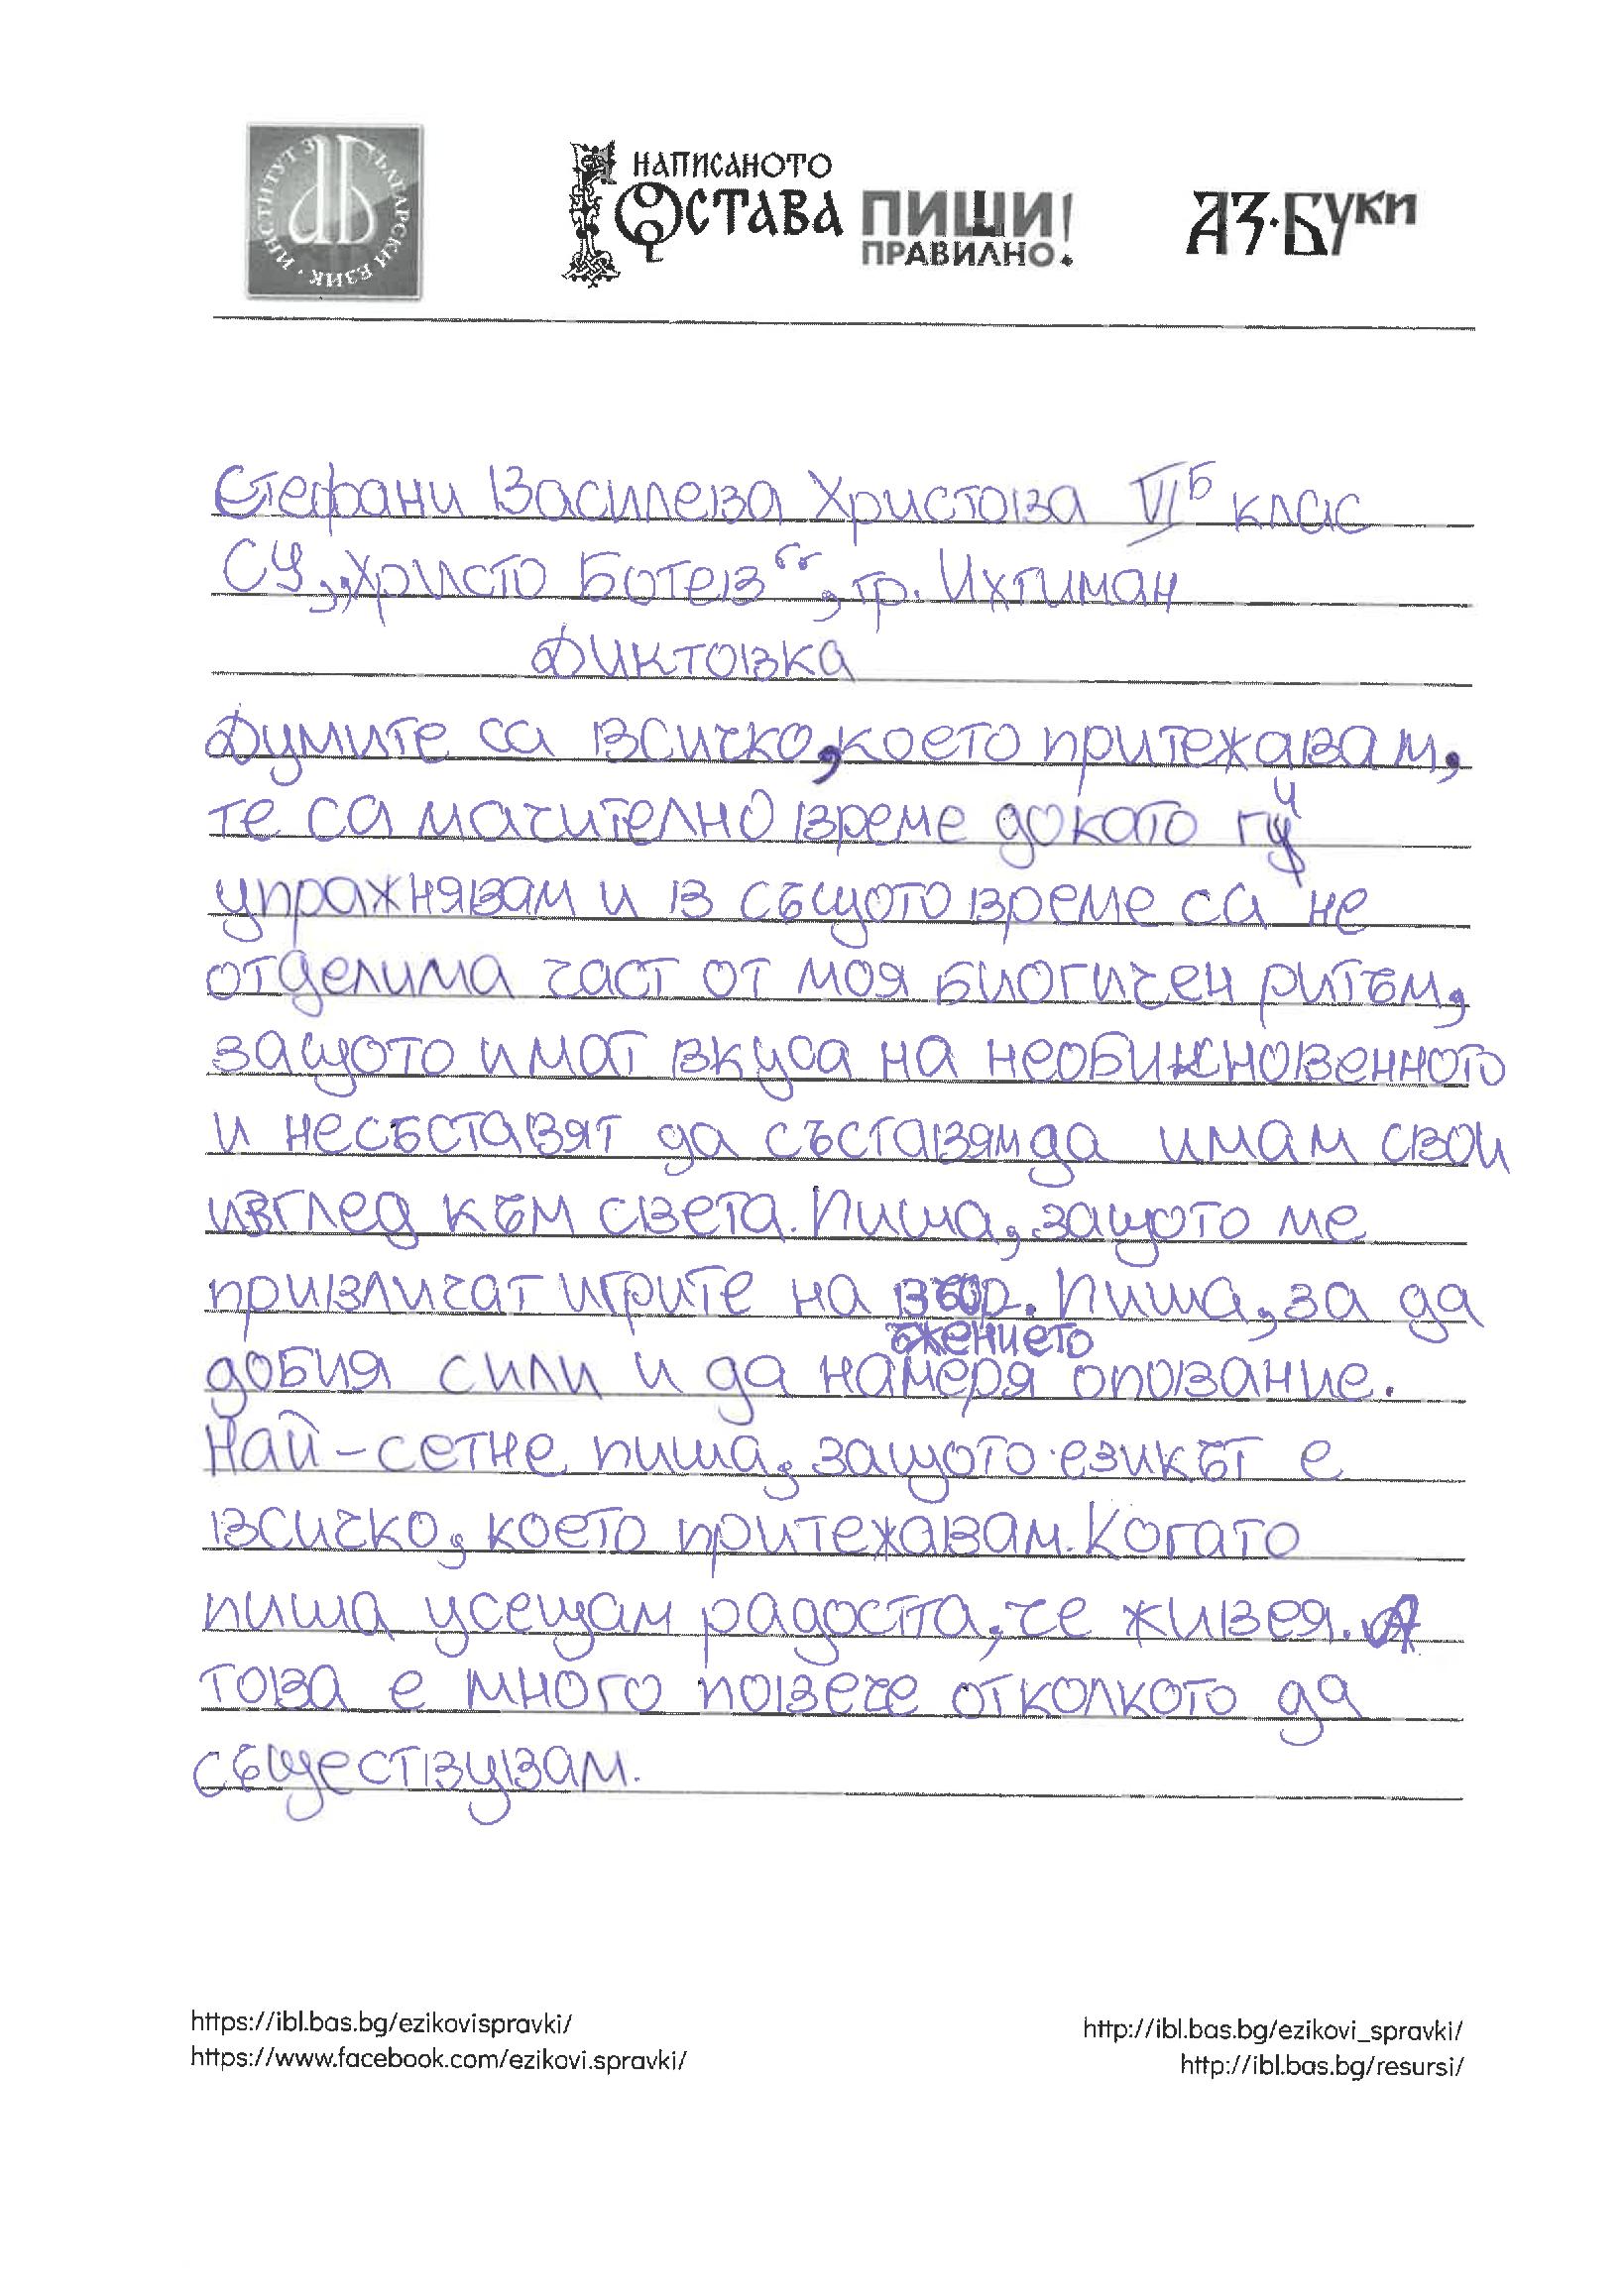 ИНСТИТУТ ЗА БЪЛГАРСКИ ЕЗИК
НАПИСАНОТО
ОСТАВА
ПИШИ!
ПРАВИЛНО!
АЗ·БУКИ
Стефани Василева Христова VIБ клас
СУ „Христо Ботев“, гр. Ихтиман
Диктовка
Думите са всичко, което притежавам,
те са мачително време докато ги
упражнявам и в същото време са не
отделима част от моя биогичен ритъм,
защото имат вкуса на необикновенното
и несъставят да съставям да имам свои
изглед към света. Пиша, защото ме
привличат игрите на въображението. Пиша, за да
добия сили и да намеря опование.
Най-сетне пиша, защото езикът е
всичко, което притежавам. Когато
пиша усещам радостта, че живея. А
това е много повече отколкото да
съществувам.
https://ibl.bas.bg/ezikovispravki/
https://www.facebook.com/ezikovi.spravki/
http://ibl.bas.bg/ezikovi_spravki/
http://ibl.bas.bg/resursi/